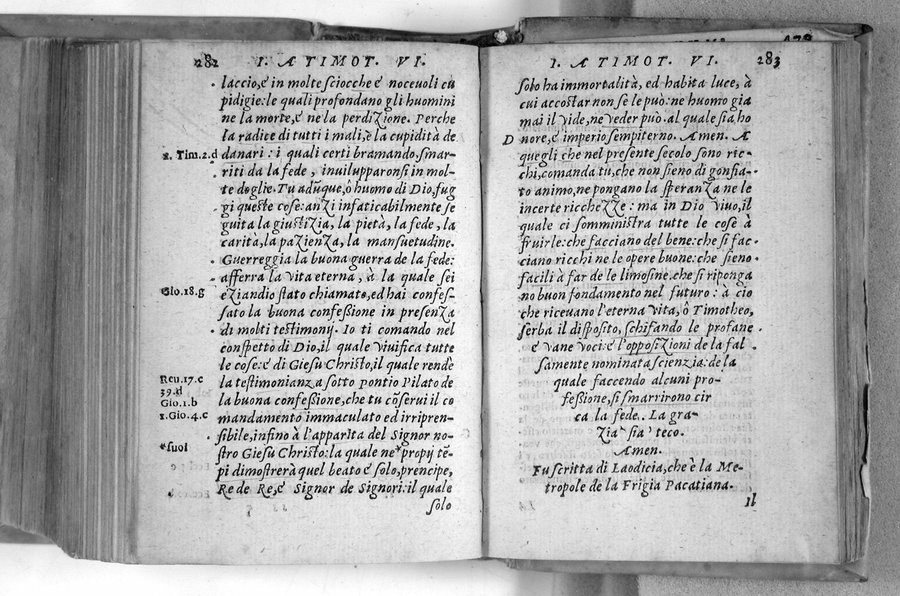 282 I. A TIMOT. VI.
laccio,e in molte sciocche e noceuoli cu
pidigie:le quali profondano gli huomini
ne la morte,e ne la perdizione. Perche
la radice di tutti i mali,è la cupidità de
2. Tim.2.d danari: i quali certi bramando,smar-
riti da la fede, inuilupparonsi in mol-
te doglie. Tu adũque,ô huomo di Dio,fug
gi queste cose:anzi infaticabilmente se
guita la giustizia, la pietà, la fede, la
carità,la pazienza, la mansuetudine.
Guerreggia la buona guerra de la fede:
afferra la vita eterna, à la quale sei
Gio.18.g eziandio stato chiamato,ed hai confes-
sato la buona confeßione in presenza
di molti testimonij. Io ti comando nel
conspetto di Dio,il quale viuifica tutte
le cose:e di Giesu Christo,il quale rendè
Reu.17.c la testimonianza sotto Pontio Pilato de
39.d la buona confeßione,che tu cõserui il co
Gio.1.b
1.Gio.4.c mandamento immaculato ed irripren-
sibile,infino à l'apparita del Signor no-
*suoi stro Giesu Christo:la quale ne*propij tẽ-
pi dimostrerà quel beato e solo,prencipe,
Re de Re,e Signor de Signori:il quale
solo
I. A TIMOT. VI. 283
solo ha immortalità, ed habita luce, à
cui accostar non se le può:ne huomo gia
mai il vide,ne veder può:al quale sia,ho
D nore,e imperio sempiterno. Amen. A
quegli che nel presente secolo sono ric-
chi,comanda tu,che non sieno di gonfia-
to animo,ne pongano la speranza ne le
incerte ricchezze: ma in Dio viuo,il
quale ci somministra tutte le cose à
fruirle:che facciano del bene:che si fac-
ciano ricchi ne le opere buone:che sieno
facili à far de le limosine:che si riponga
no buon fondamento nel futuro: à cio
che riceuano l'eterna vita, ô Timotheo,
serba il disposito, schifando le profane
e vane voci:e l'opposizioni de la fal
samente nominata scienzia:de la
quale faccendo alcuni pro-
feßione,si smarrirono cir
ca la fede.. La gra-
zia sia teco.
Amen.
Fu scritta di Laodicia,che è la Me-
tropole de la Frigia Pacatiana.
Il